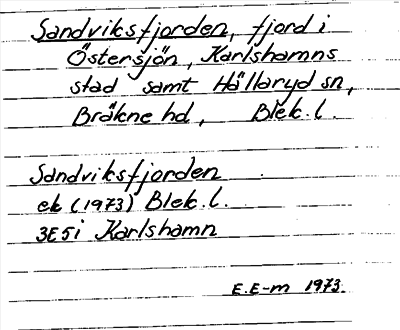 Sandviksfjorden, fjord i
Östersjön, Karlshamns
stad samt Hällaryd sn,
Bräkne hd, Blek. l.
Sandviksfjorden
ek (1973) Blek. l.
3E5i Karlshamn
E.E-m 1973.